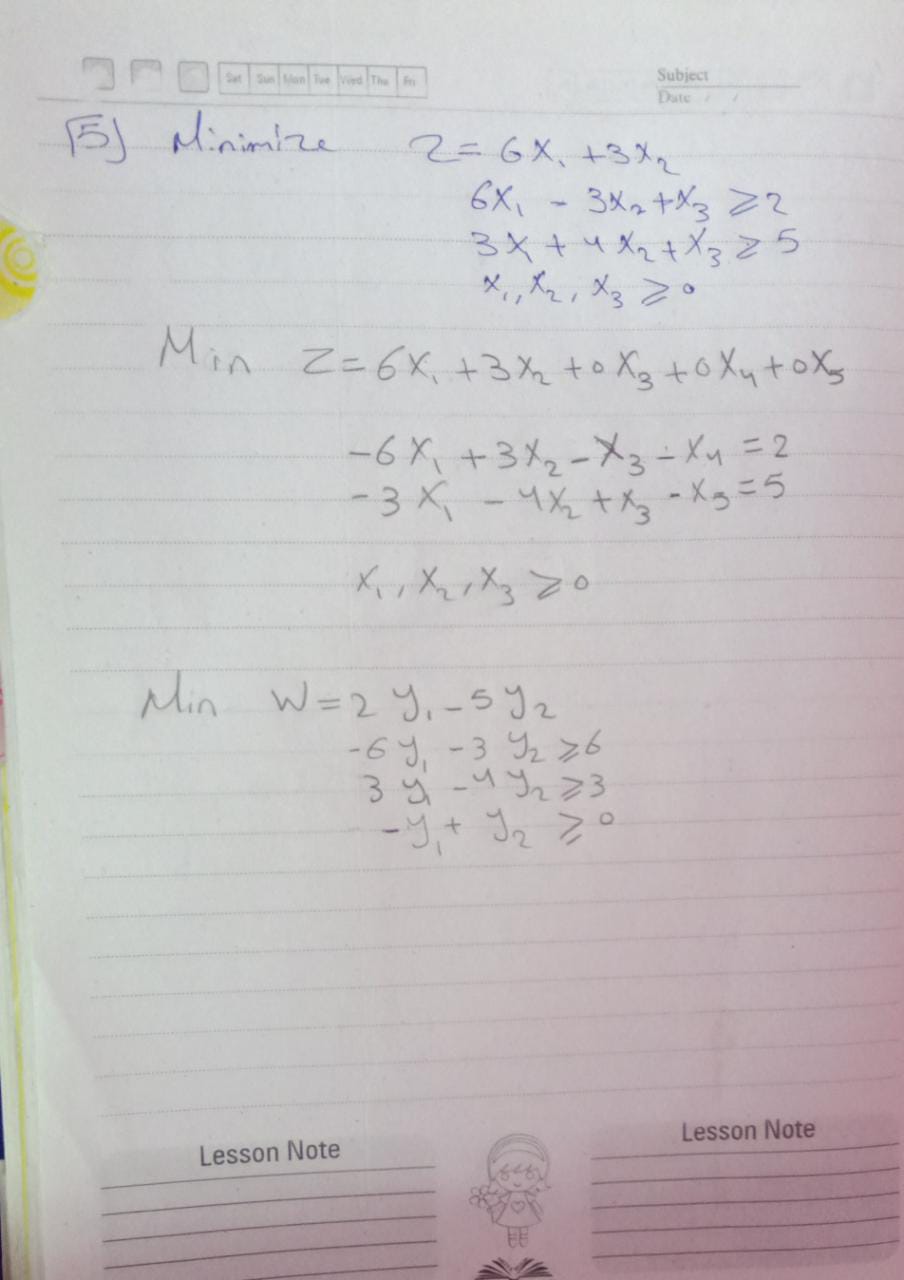 Sat Sun Mon Tue Wed Thu Fri
Subject
Date / /
[5] Minimize Z = 6X₁ + 3X₂
6X₁ - 3X₂ + X₃ ≥ 2
3X + 4X₂ + X₃ ≥ 5
X₁, X₂, X₃ ≥ 0
Min Z = 6X₁ + 3X₂ + 0X₃ + 0X₄ + 0X₅
-6X₁ + 3X₂ - X₃ - X₄ = 2
-3X₁ - 4X₂ + X₃ - X₅ = 5
X₁, X₂, X₃ ≥ 0
Min W = 2y₁ - 5y₂
-6y₁ - 3y₂ ≥ 6
3y₁ - 4y₂ ≥ 3
-y₁ + y₂ ≥ 0
Lesson Note
Lesson Note